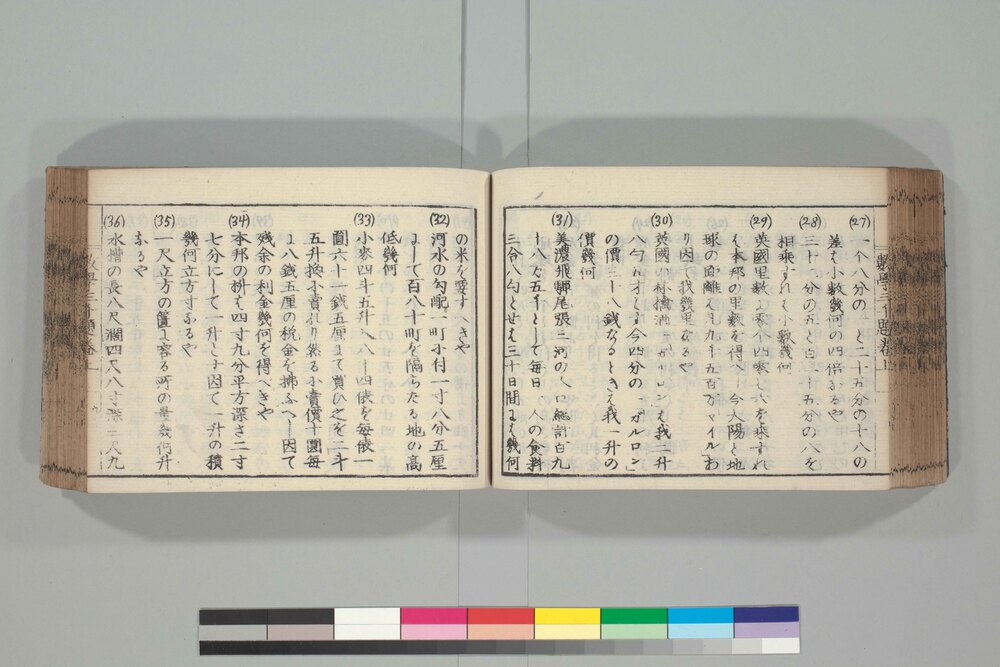 (27) 一个八分の一と二十五分の十八の
差は小数幾何の四倍なるや
(28) 三十二分の五と百二十五分の八を
相乗すれは小数幾何
(29) 英國里数に零个四零七八を乗すれ
は本邦の里数を得へし今太陽と地
球の距離凡九千五百万「マイル」な
り因て我幾里なるや
(30) 英國の林檎酒一「ガルロン」は我二升
八勺五才とす今四分の一「ガルロン」
の價三十八銭なるときは我一升の
價幾何
(31) 美濃飛騨尾張三河の人口総計百九
十八万五千として毎日一人の食料
三合八勺とせは三十日間には幾何
の米を要すへきや
(32) 河水の勾配一町に付一寸八分五厘
にして百八十町を隔ちたる地の高
低幾何
(33) 小麥四斗五升入八十四俵を毎俵一
圓六十一銭五厘にて買ひ之を二斗
五升換小賣たり然る小賣價十圓毎
に八銭五厘の税金を拂ふへし因て
残余の利金幾何を得へきや
(34) 本邦の枡は四寸九分平方深さ二寸
七分にして一升とす因て一升の積
幾何立方寸なるや
(35) 一尺立方の箇に容る可の量幾何升
なるや
(36) 水槽の長八尺濶四尺八寸深二尺九
數學三千題巻上